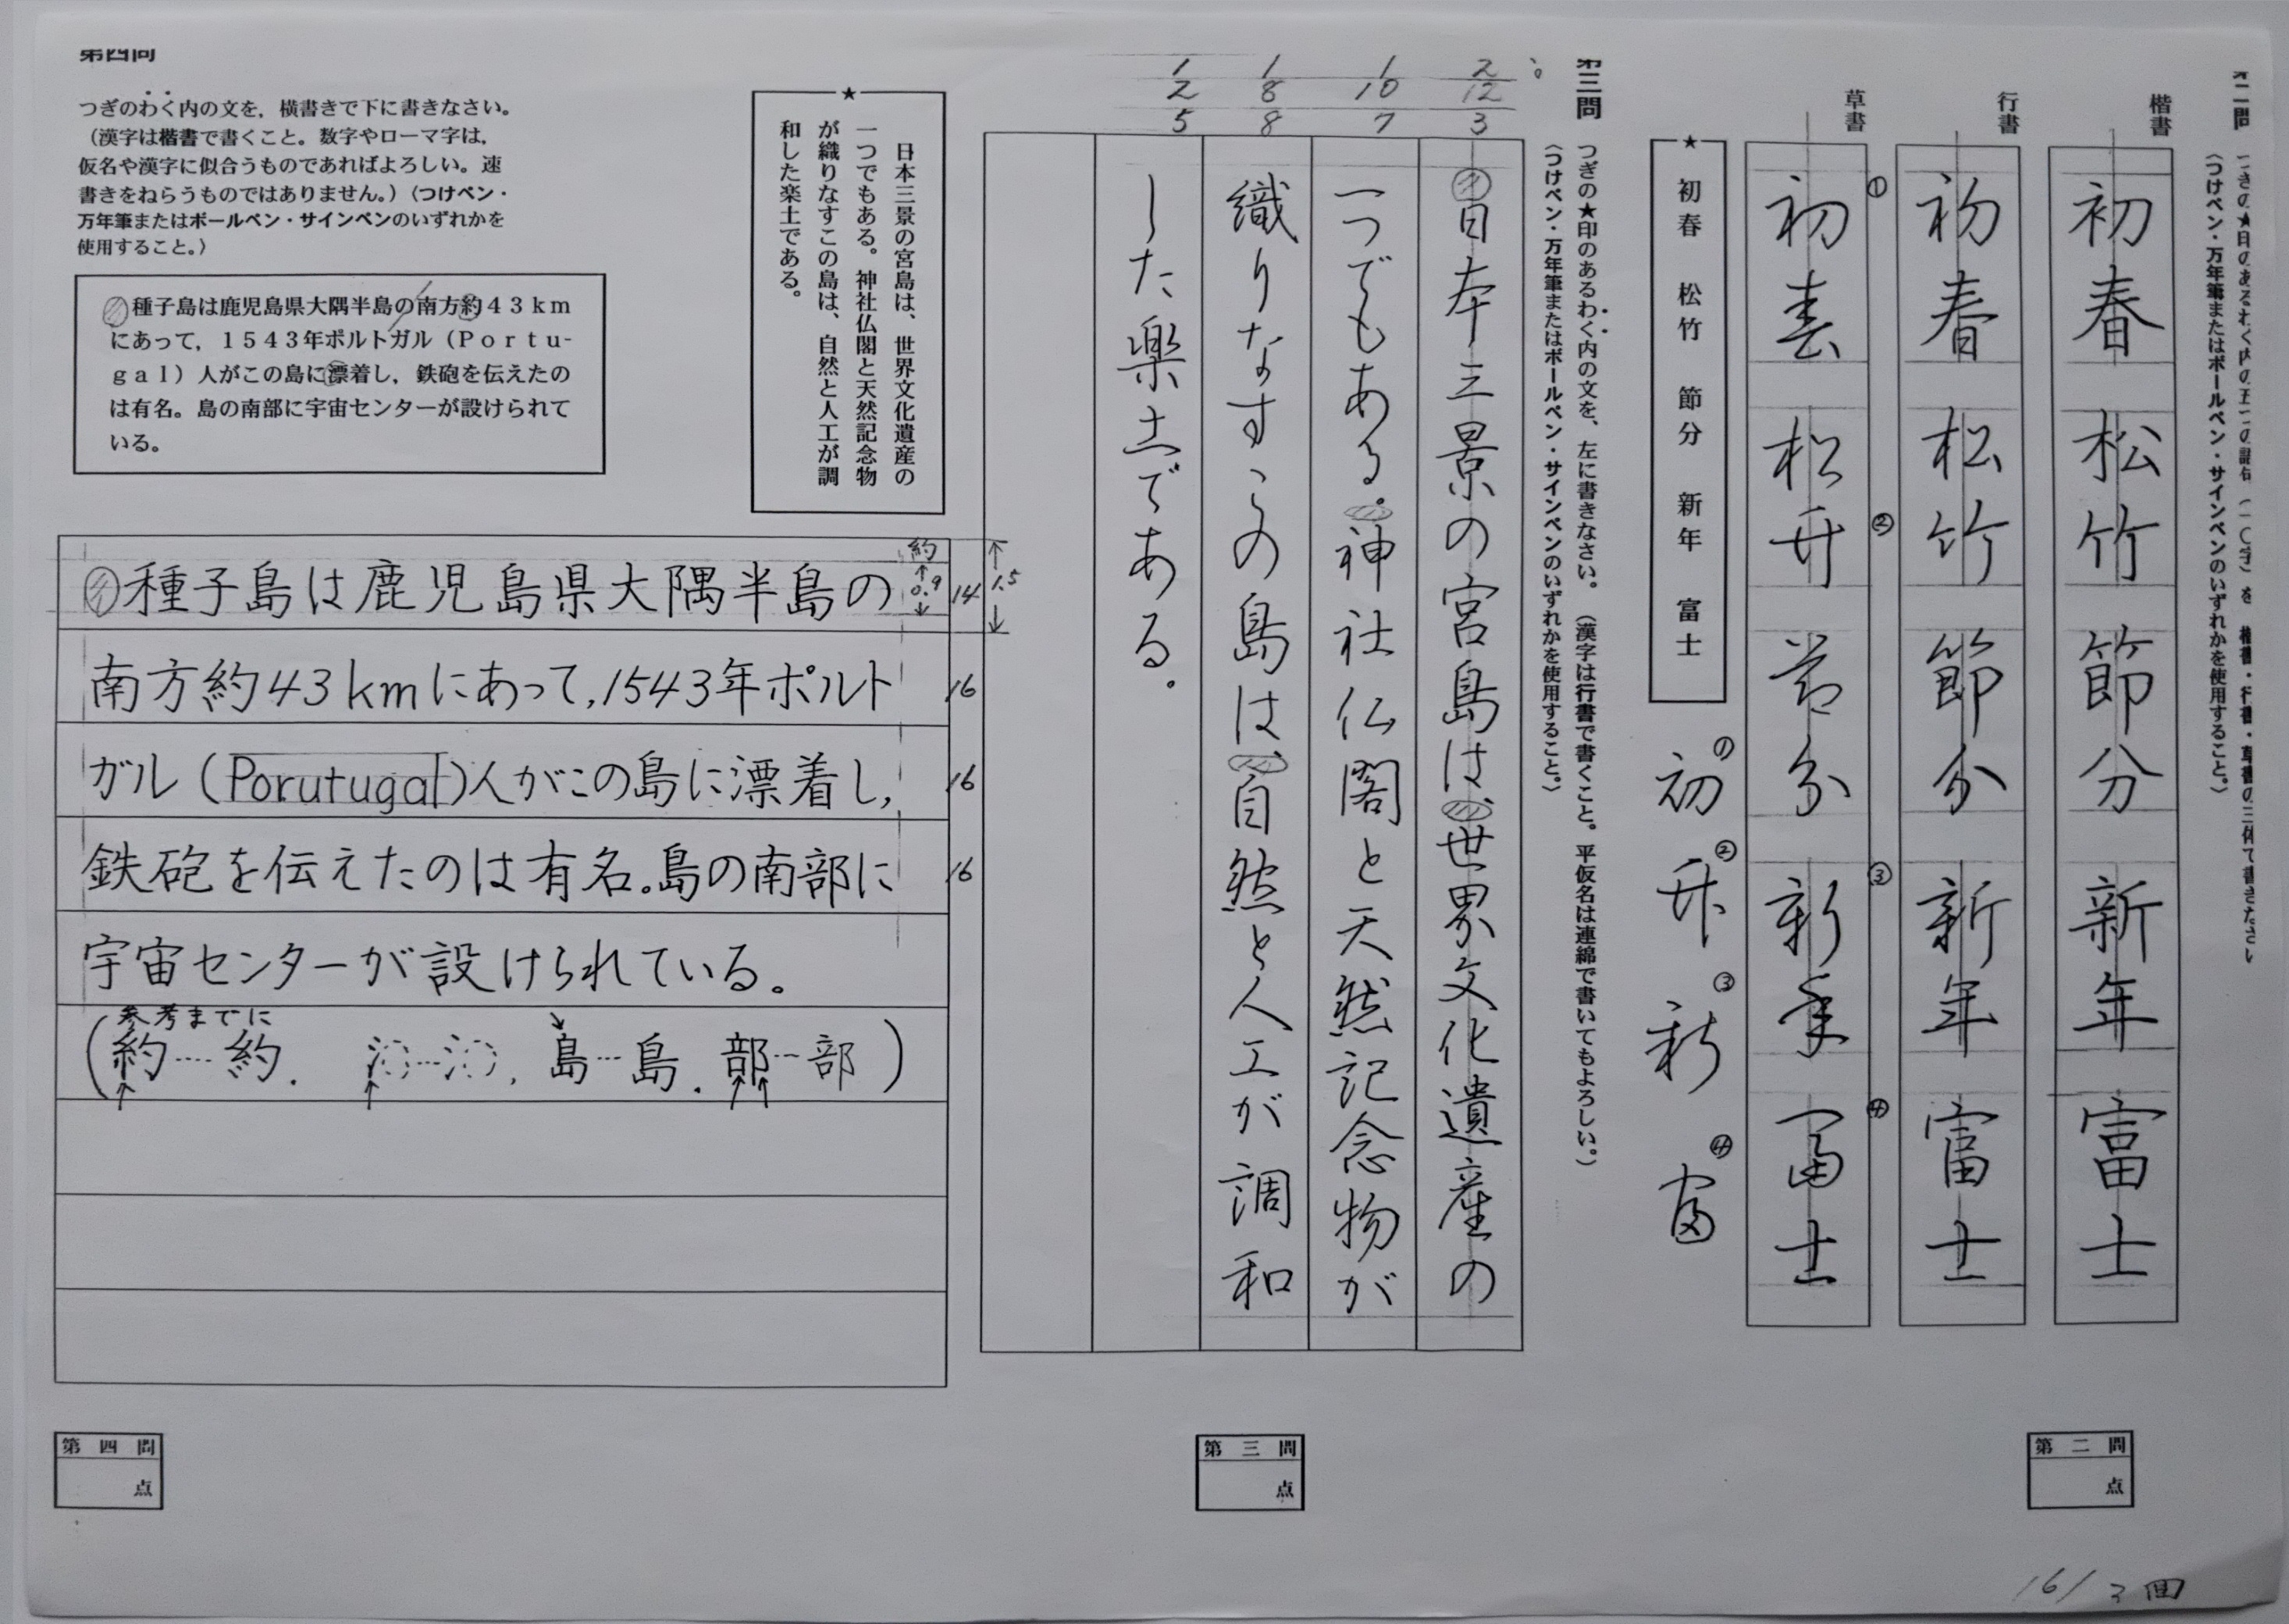 第二問
つぎの★印のあるわく内の五つの語句(一〇字)を、楷書・行書・草書の三体で書きなさい
(つけペン・万年筆またはボールペン・サインペンのいずれかを使用すること。)
楷書
初春松竹節分新年富士
行書
初春松竹節分新年富士
草書
初春松竹節分新年富士
① ② ③ ④
★
初春 松竹 節分 新年 富士
初 ②竹 ③新 ④富
第三問
つぎの★印のあるわく内の文を、左に書きなさい。(漢字は行書で書くこと。平仮名は連綿で書いてもよろしい。)
(つけペン・万年筆またはボールペン・サインペンのいずれかを使用すること。)
2 12 3
1 10 7
1 8 8
1 2 5
日本三景の宮島は、世界文化遺産の
一つでもある。神社仏閣と天然記念物が
織りなすこの島は、自然と人工が調和
した楽土である。
★
日本三景の宮島は、世界文化遺産の
一つでもある。神社仏閣と天然記念物
が織りなすこの島は、自然と人工が調
和した楽土である。
第四問
つぎのわく内の文を,横書きで下に書きなさい。
(漢字は楷書で書くこと。数字やローマ字は,
仮名や漢字に似合うものであればよろしい。速
書きをねらうものではありません。)(つけペン・
万年筆またはボールペン・サインペンのいずれかを
使用すること。)
種子島は鹿児島県大隅半島の南方約43km
にあって,1543年ポルトガル(Portu-
gal)人がこの島に漂着し,鉄砲を伝えたの
は有名。島の南部に宇宙センターが設けられて
いる。
種子島は鹿児島県大隅半島の
約 0.9
14
1.5
南方約43kmにあって,1543年ポルト
16
ガル(Porutugal)人がこの島に漂着し,
16
鉄砲を伝えたのは有名。島の南部に
16
宇宙センターが設けられている。
参考までに
(約…約. 島…島. 部…部)
第四問
点
第三問
点
第二問
点
16/3回